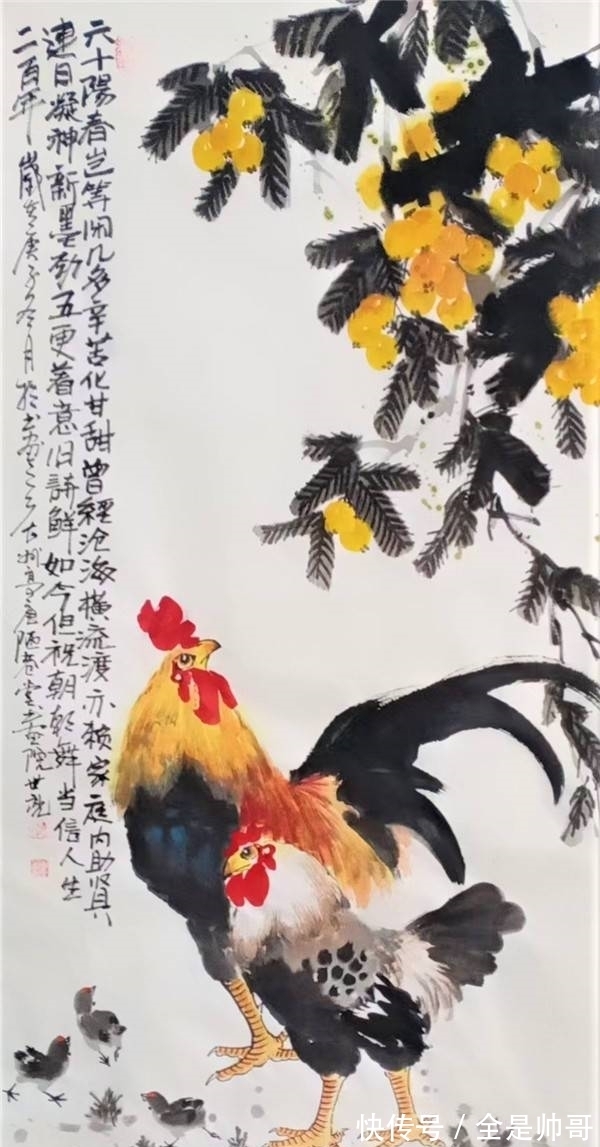 六十陽春岂等闲几多辛苦化甘甜曾經沧海横流渡亦赖家庭内助賢
連日凝神新墨劲五更着意旧詩鲜如今但祝朝朝舞当信人生
二百年 歲在庚子冬月於
快传号 / 全是帅哥